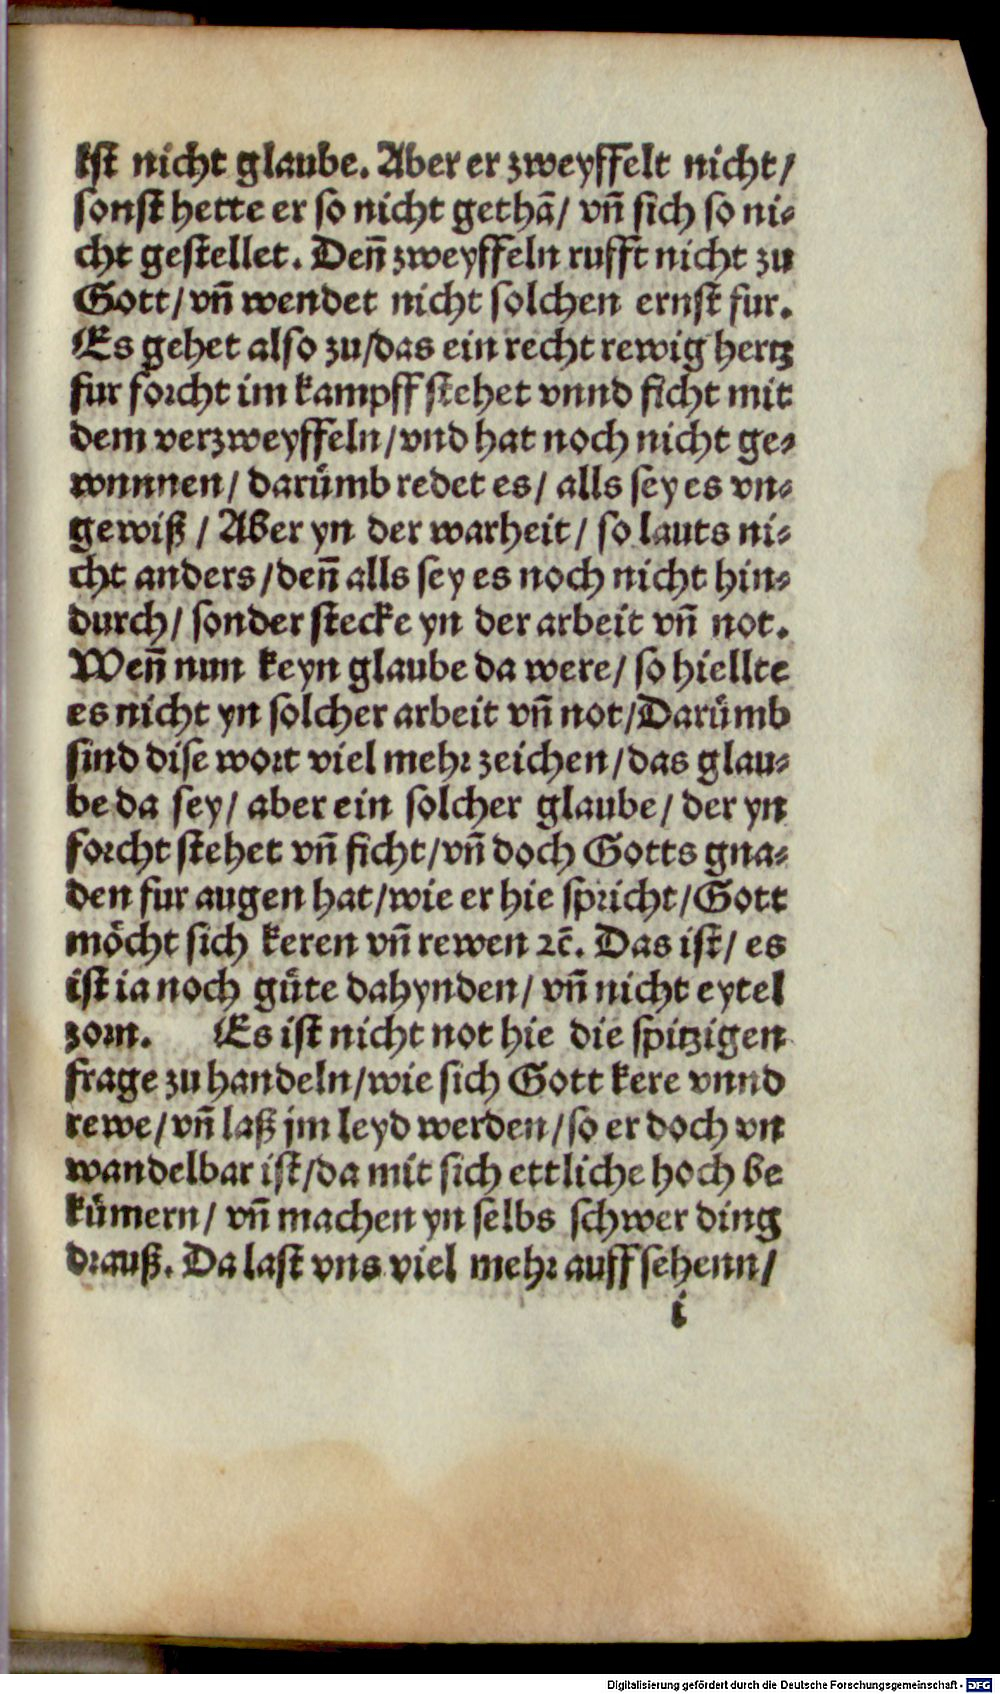 ist nicht glaube. Aber er zweyffelt nicht/
sonst hette er so nicht gethā/ vn̄ sich so ni⸗
cht gestellet. Den̄ zweyffeln rufft nicht zu
Gott/ vn̄ wendet nicht solchen ernst fur.
Es gehet also zu/das ein recht rewig hertz
fur forcht im kampff stehet vnnd ficht mit
dem verzweyffeln/vnd hat noch nicht ge⸗
wunnen/ darümb redet es/ alls sey es vn⸗
gewiß / Aber yn der warheit/ so lauts ni⸗
cht anders/den̄ alls sey es noch nicht hin⸗
durch/ sonder stecke yn der arbeit vn̄ not.
Wen̄ nun keyn glaube da were/ so hiellte
es nicht yn solcher arbeit vn̄ not/Darümb
sind dise wort viel mehr zeichen/das glau⸗
be da sey/ aber ein solcher glaube/ der yn
forcht stehet vn̄ ficht/vn̄ doch Gotts gna⸗
den fur augen hat/wie er hie spricht/Gott
möcht sich keren vn̄ rewen ꝛc̄. Das ist/ es
ist ia noch güte dahynden/ vn̄ nicht eytel
zorn. Es ist nicht not hie die spitzigen
frage zu handeln/wie sich Gott kere vnnd
rewe/vn̄ laß jm leyd werden/so er doch vn
wandelbar ist/da mit sich ettliche hoch be
kümern/ vn̄ machen yn selbs schwer ding
drauß. Da last vns viel mehr auff sehenn/
i
Digitalisierung gefördert durch die Deutsche Forschungsgemeinschaft - DFG